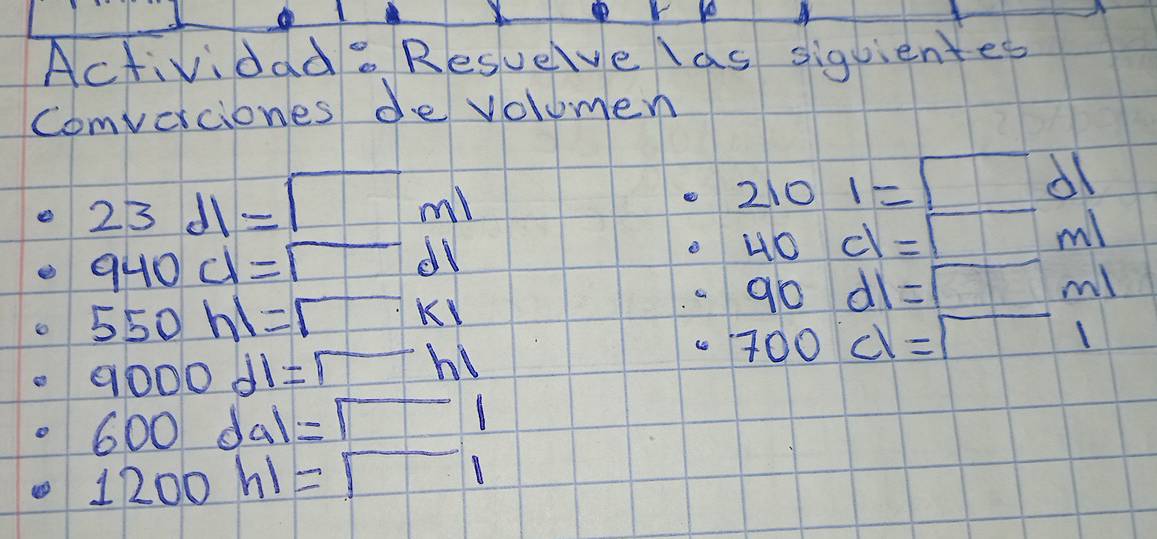 Actividad: Resuelve las siguientes
Comverciones de volumen
• 23 dl = ml
• 940 cl = dl
• 550 hl = Kl
• 9000 dl = hl
• 600 dal = l
• 1200 hl = l
• 210 l = dl
• 40 cl = ml
• 90 dl = ml
• 700 cl = l